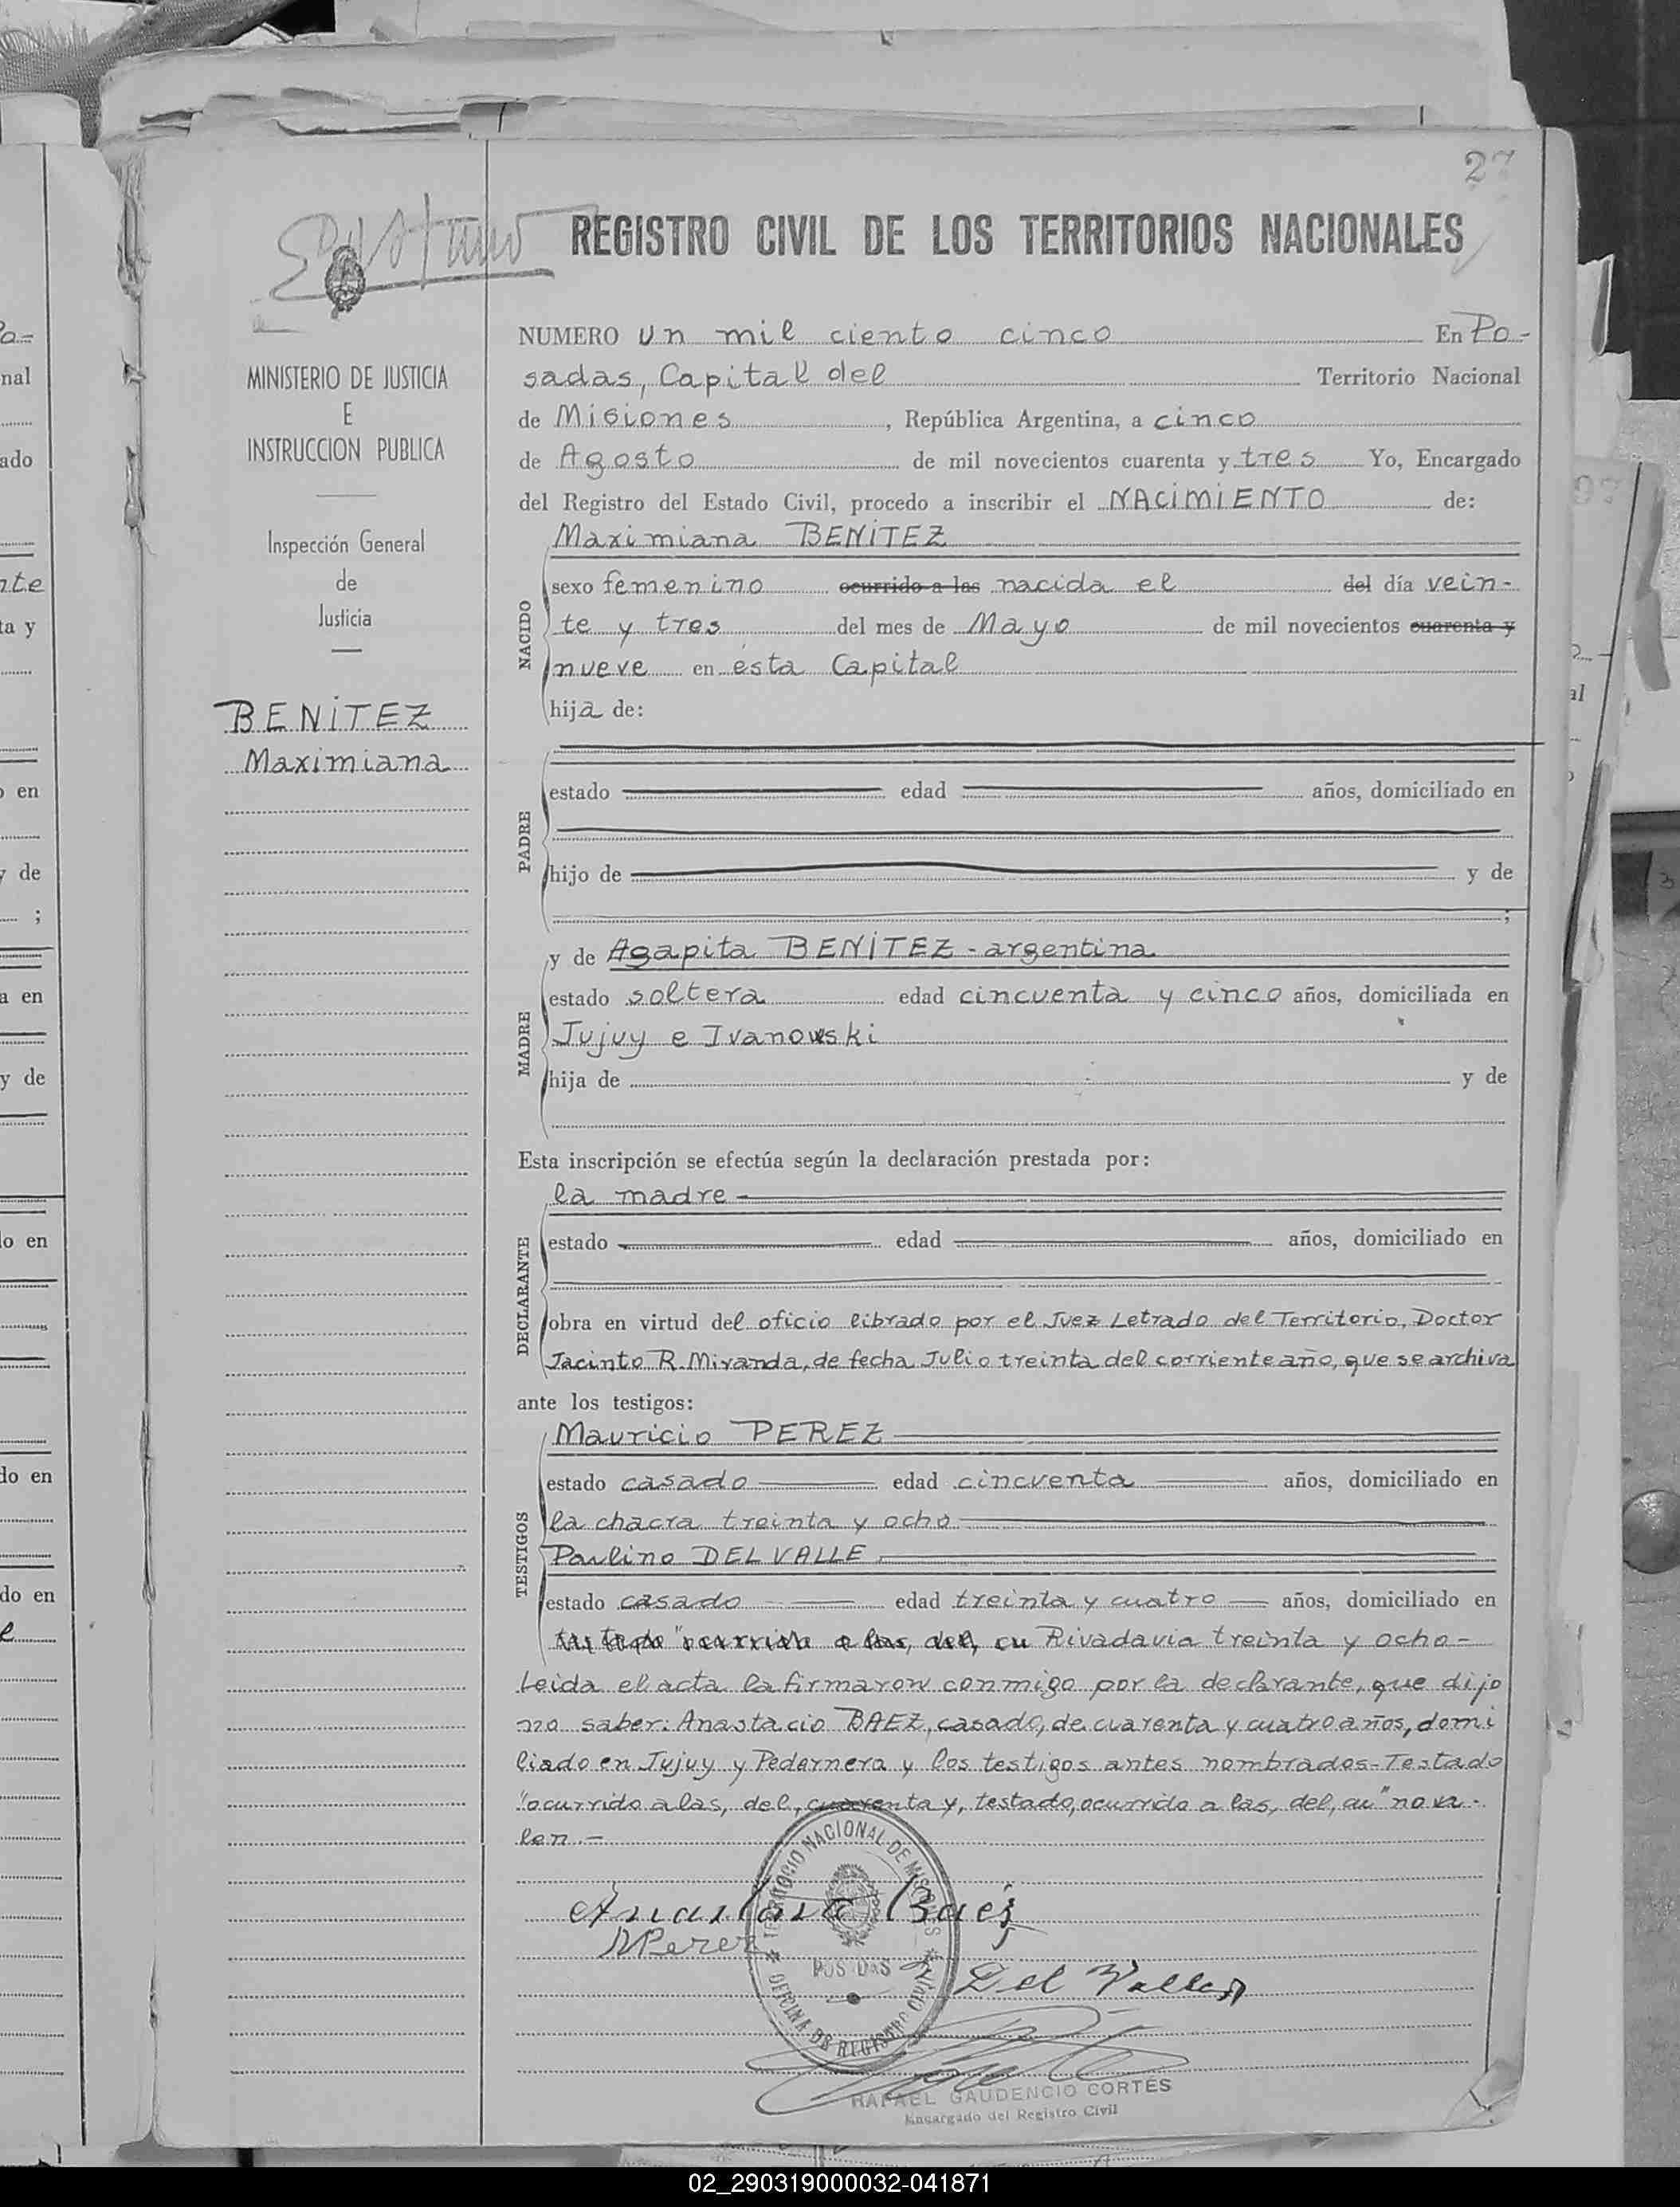 27
REGISTRO CIVIL DE LOS TERRITORIOS NACIONALES
MINISTERIO DE JUSTICIA
E
INSTRUCCION PUBLICA
Inspección General
de
Justicia
BENITEZ
Maximiana
NUMERO un mil ciento cinco En Po-
sadas, Capital del Territorio Nacional
de Misiones, República Argentina, a cinco
de Agosto de mil novecientos cuarenta y tres Yo, Encargado
del Registro del Estado Civil, procedo a inscribir el NACIMIENTO de:
NACIDO
Maximiana BENITEZ
sexo femenino ocurrido a las nacida el del día vein-
te y tres del mes de Mayo de mil novecientos cuarenta y
nueve en ésta Capital
hija de:
PADRE
estado edad años, domiciliado en
hijo de y de
;
MADRE
y de Agapita BENITEZ - argentina
estado soltera edad cincuenta y cinco años, domiciliada en
Jujuy e Ivanowski
hija de y de
Esta inscripción se efectúa según la declaración prestada por:
DECLARANTE
la madre -
estado edad años, domiciliado en
obra en virtud del oficio librado por el Juez Letrado del Territorio, Doctor
Jacinto R. Miranda, de fecha Julio treinta del corriente año, que se archiva
ante los testigos:
TESTIGOS
Mauricio PEREZ
estado casado edad cincuenta años, domiciliado en
la chacra treinta y ocho
Paulino DEL VALLE
estado casado edad treinta y cuatro años, domiciliado en
Rivadavia treinta y ocho-
Leida el acta la firmaron conmigo por la declarante, que dijo
no saber: Anastacio BAEZ, casado, de cuarenta y cuatro años, domi
liado en Jujuy y Pedernera y los testigos antes nombrados-Testado
"ocurrido a las, del, cuarenta y, testado, ocurrido a las, del, cu" no va-
len.-
Baez
MPerez
Del Valle
TERRITORIO NACIONAL DE MISIONES
POSADAS
OFICINA DE REGISTRO CIVIL
RAFAEL GAUDENCIO CORTÉS
Encargado del Registro Civil
02_290319000032-041871